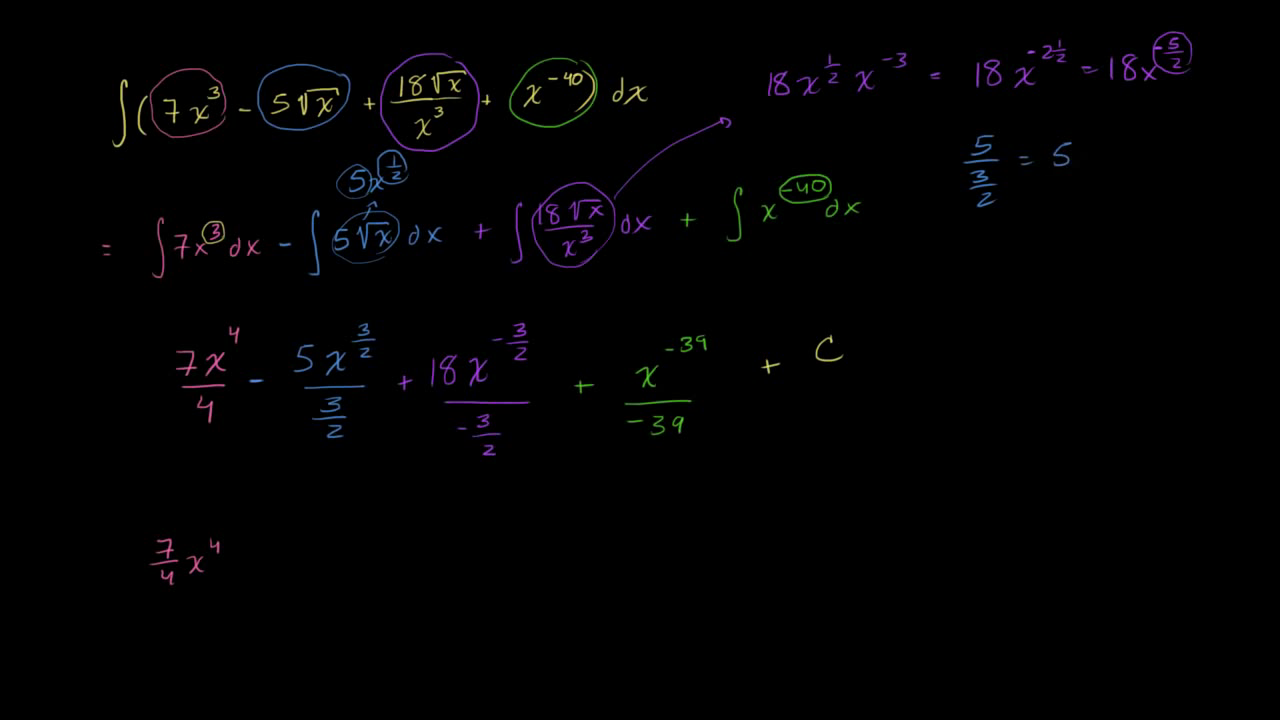 ∫(7x³ - 5√x + 18√x/x³ + x⁻⁴⁰) dx
18x^(1/2) x⁻³ = 18x^(-2 1/2) = 18x^(-5/2)
5x^(1/2)
5/(3/2) = 5
= ∫7x³dx - ∫5√x dx + ∫18√x/x³ dx + ∫x⁻⁴⁰dx
7x⁴/4 - 5x^(3/2)/(3/2) + 18x^(-3/2)/(-3/2) + x⁻³⁹/-39 + C
7/4 x⁴